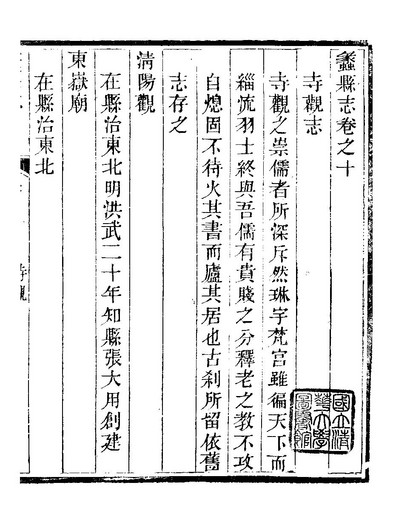 蠡縣志卷之十
寺觀志
寺觀之崇儒者所深斥然琳宇梵宮雖徧天下而
緇流羽士終與吾儒有貴賤之分釋老之教不攻
自熄固不待火其書而廬其居也古刹所留依舊
志存之
清陽觀
在縣治東北明洪武二十年知縣張大用創建
東嶽廟
在縣治東北
寺觀
國立清
華大學
圖書館